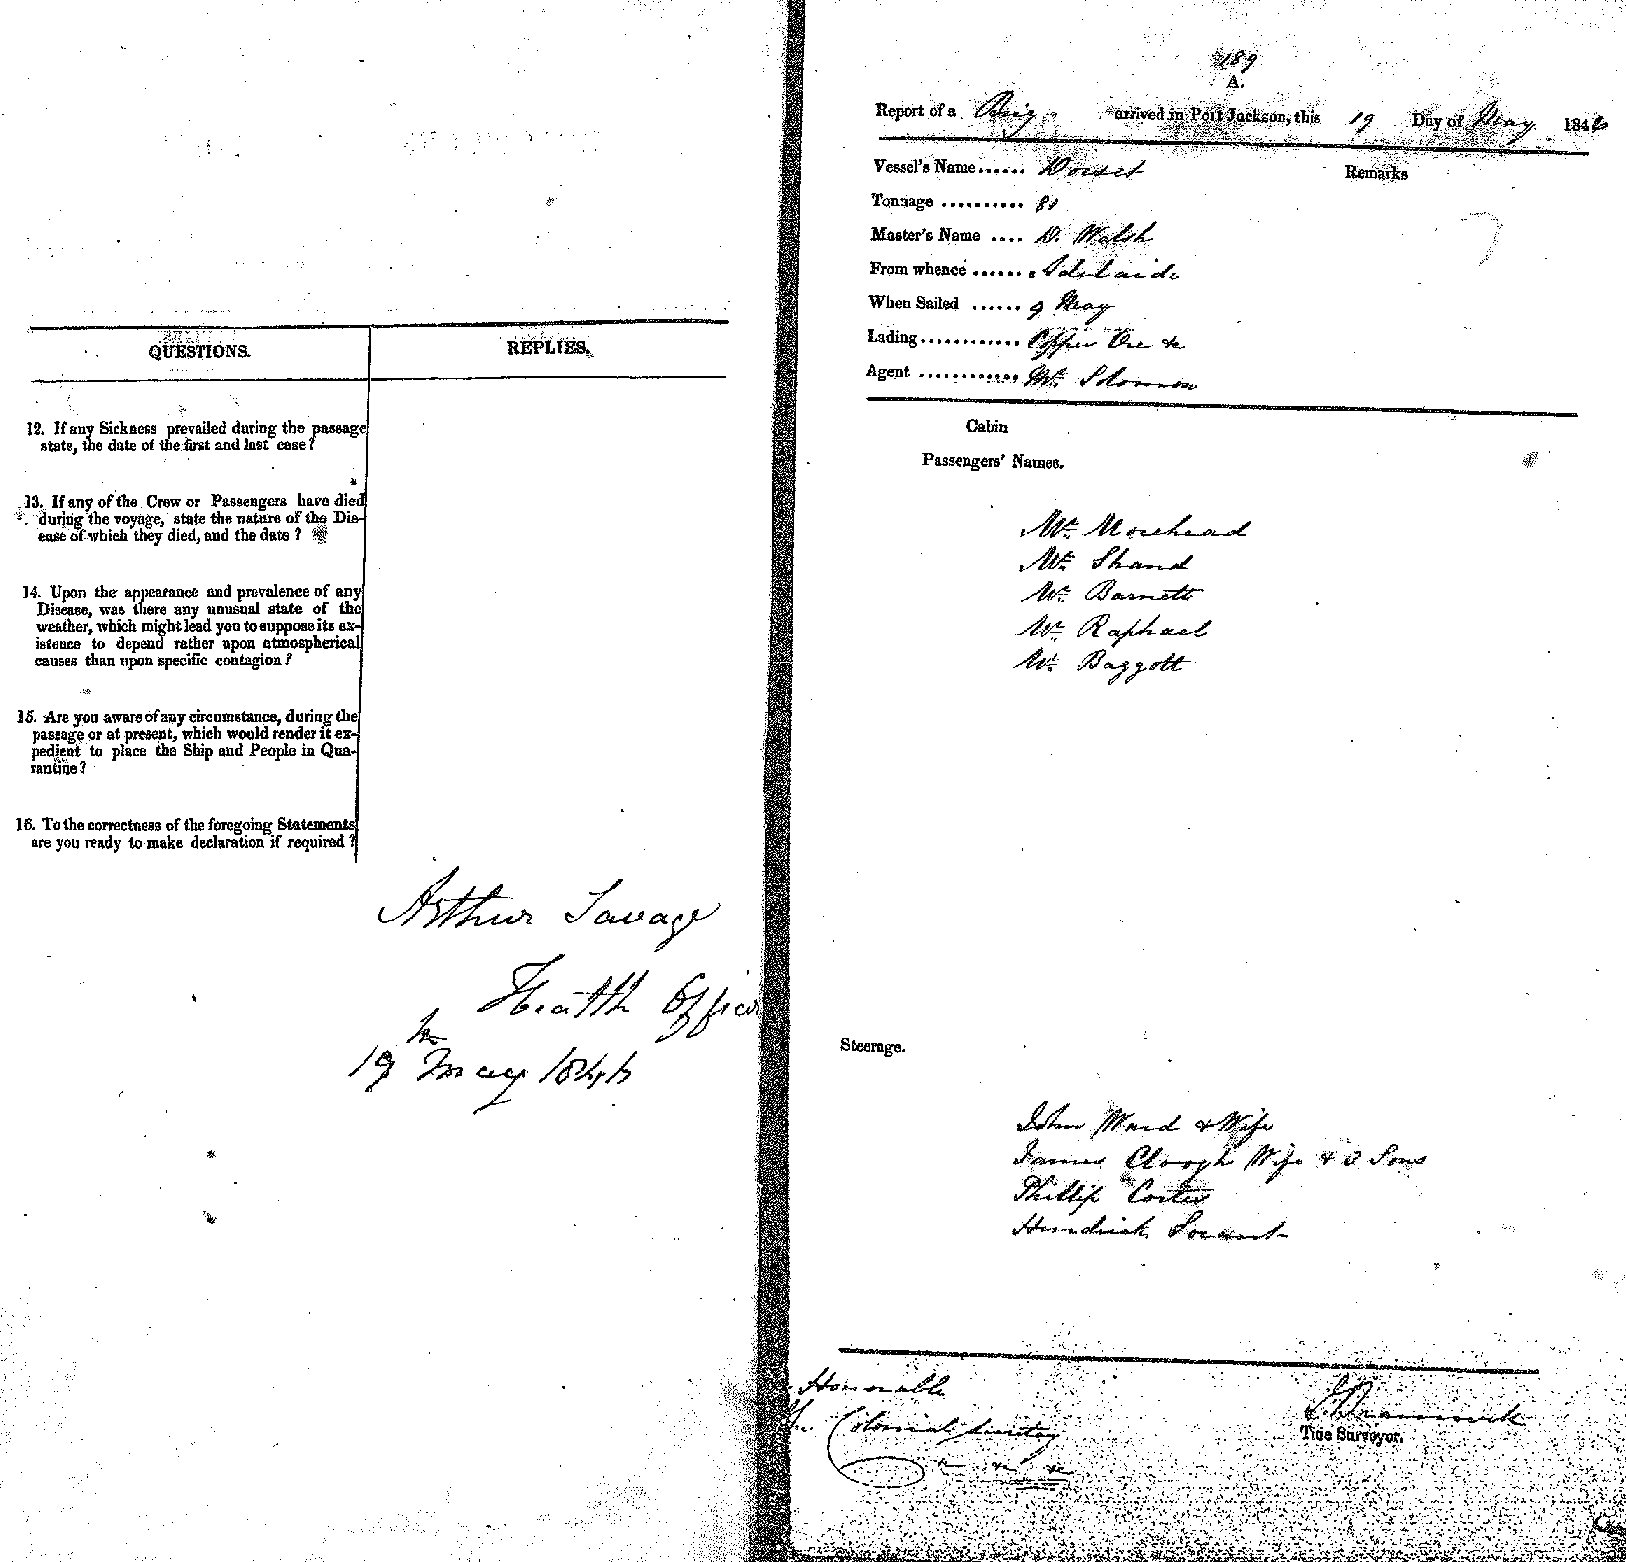 QUESTIONS.
REPLIES.
12. If any Sickness prevailed during the passage
state, the date of the first and last case?
13. If any of the Crew or Passengers have died
during the voyage, state the nature of the Dis-
ease of which they died, and the date?
14. Upon the appearance and prevalence of any
Disease, was there any unusual state of the
weather, which might lead you to suppose its ex-
istence to depend rather upon atmospherical
causes than upon specific contagion?
15. Are you aware of any circumstance, during the
passage or at present, which would render it ex-
pedient to place the Ship and People in Qua-
rantine?
16. To the correctness of the foregoing Statements
are you ready to make declaration if required?
Arthur Savage
Health Officer
19th May 1846
189
A.
Report of a Brig arrived in Port Jackson, this 19 Day of May 1846
Vessel's Name...... Dorset
Remarks
Tonnage .......... 81
Master's Name .... D. Walsh
From whence ...... Adelaide
When Sailed ...... 9 May
Lading ............ Copper Ore &c
Agent ............. Mr. Solomon
Cabin
Passengers' Names.
Mr. Morehead
Mr. Shand
Mr. Barnett
Mr. Raphael
Mr. Baggott
Steerage.
John Ward & Wife
James Clough Wife & Sons
Phillip Coster
Hendrick
Honorable
The Colonial Secretary
&c &c &c
Tide Surveyor.